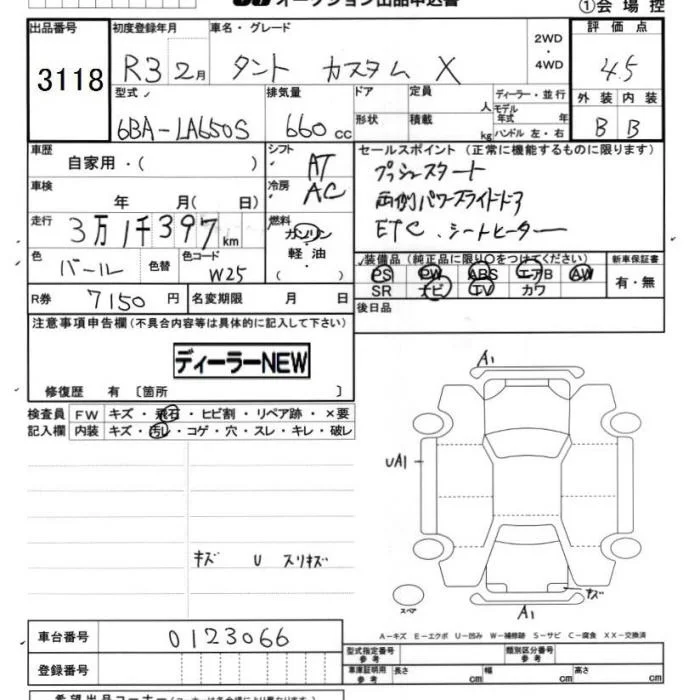 オークション出品申込書
①会場控
出品番号 初度登録年月 車名・グレード 2WD・4WD 評価点
3118 R3 2月 タント カスタム X 4.5
型式 排気量 ドア 定員 人 ディーラー・並行 外装 内装
6BA-LA650S 660cc 形状 積載 kg モデル年式 年 ハンドル 左・右 B B
車歴 自家用・( ) シフト AT セールスポイント (正常に機能するものに限ります)
プッシュスタート
車検 年 月( 日) 冷房 AC 両側パワースライドドア
走行 3万1千397km 燃料 ガソリン 軽油 ( ) ETC、シートヒーター
色 パール 色替 色コード W25 装備品 (純正品に限り○をつけてください) 新車保証書
PS PW ABS エアB AW 有・無
SR ナビ TV カワ
R券 7150円 名変期限 月 日 後日品
注意事項申告欄(不具合内容等は具体的に記入して下さい)
ディーラーNEW
修復歴 有 〔箇所 〕
検査員 FW キズ・飛石・ヒビ割・リペア跡・×要
記入欄 内装 キズ・汚レ・コゲ・穴・スレ・キレ・破レ
A1
UA1
キズ U スリキズ
キズ
スペア
A1
A-キズ E-エクボ U-凹み W-補修跡 S-サビ C-腐食 XX-交換済
車台番号 0123066
型式指定番号 参考 類別区分番号 参考
登録番号 車庫証明用 参考 長さ cm 幅 cm 高さ cm
希望出品コーナー